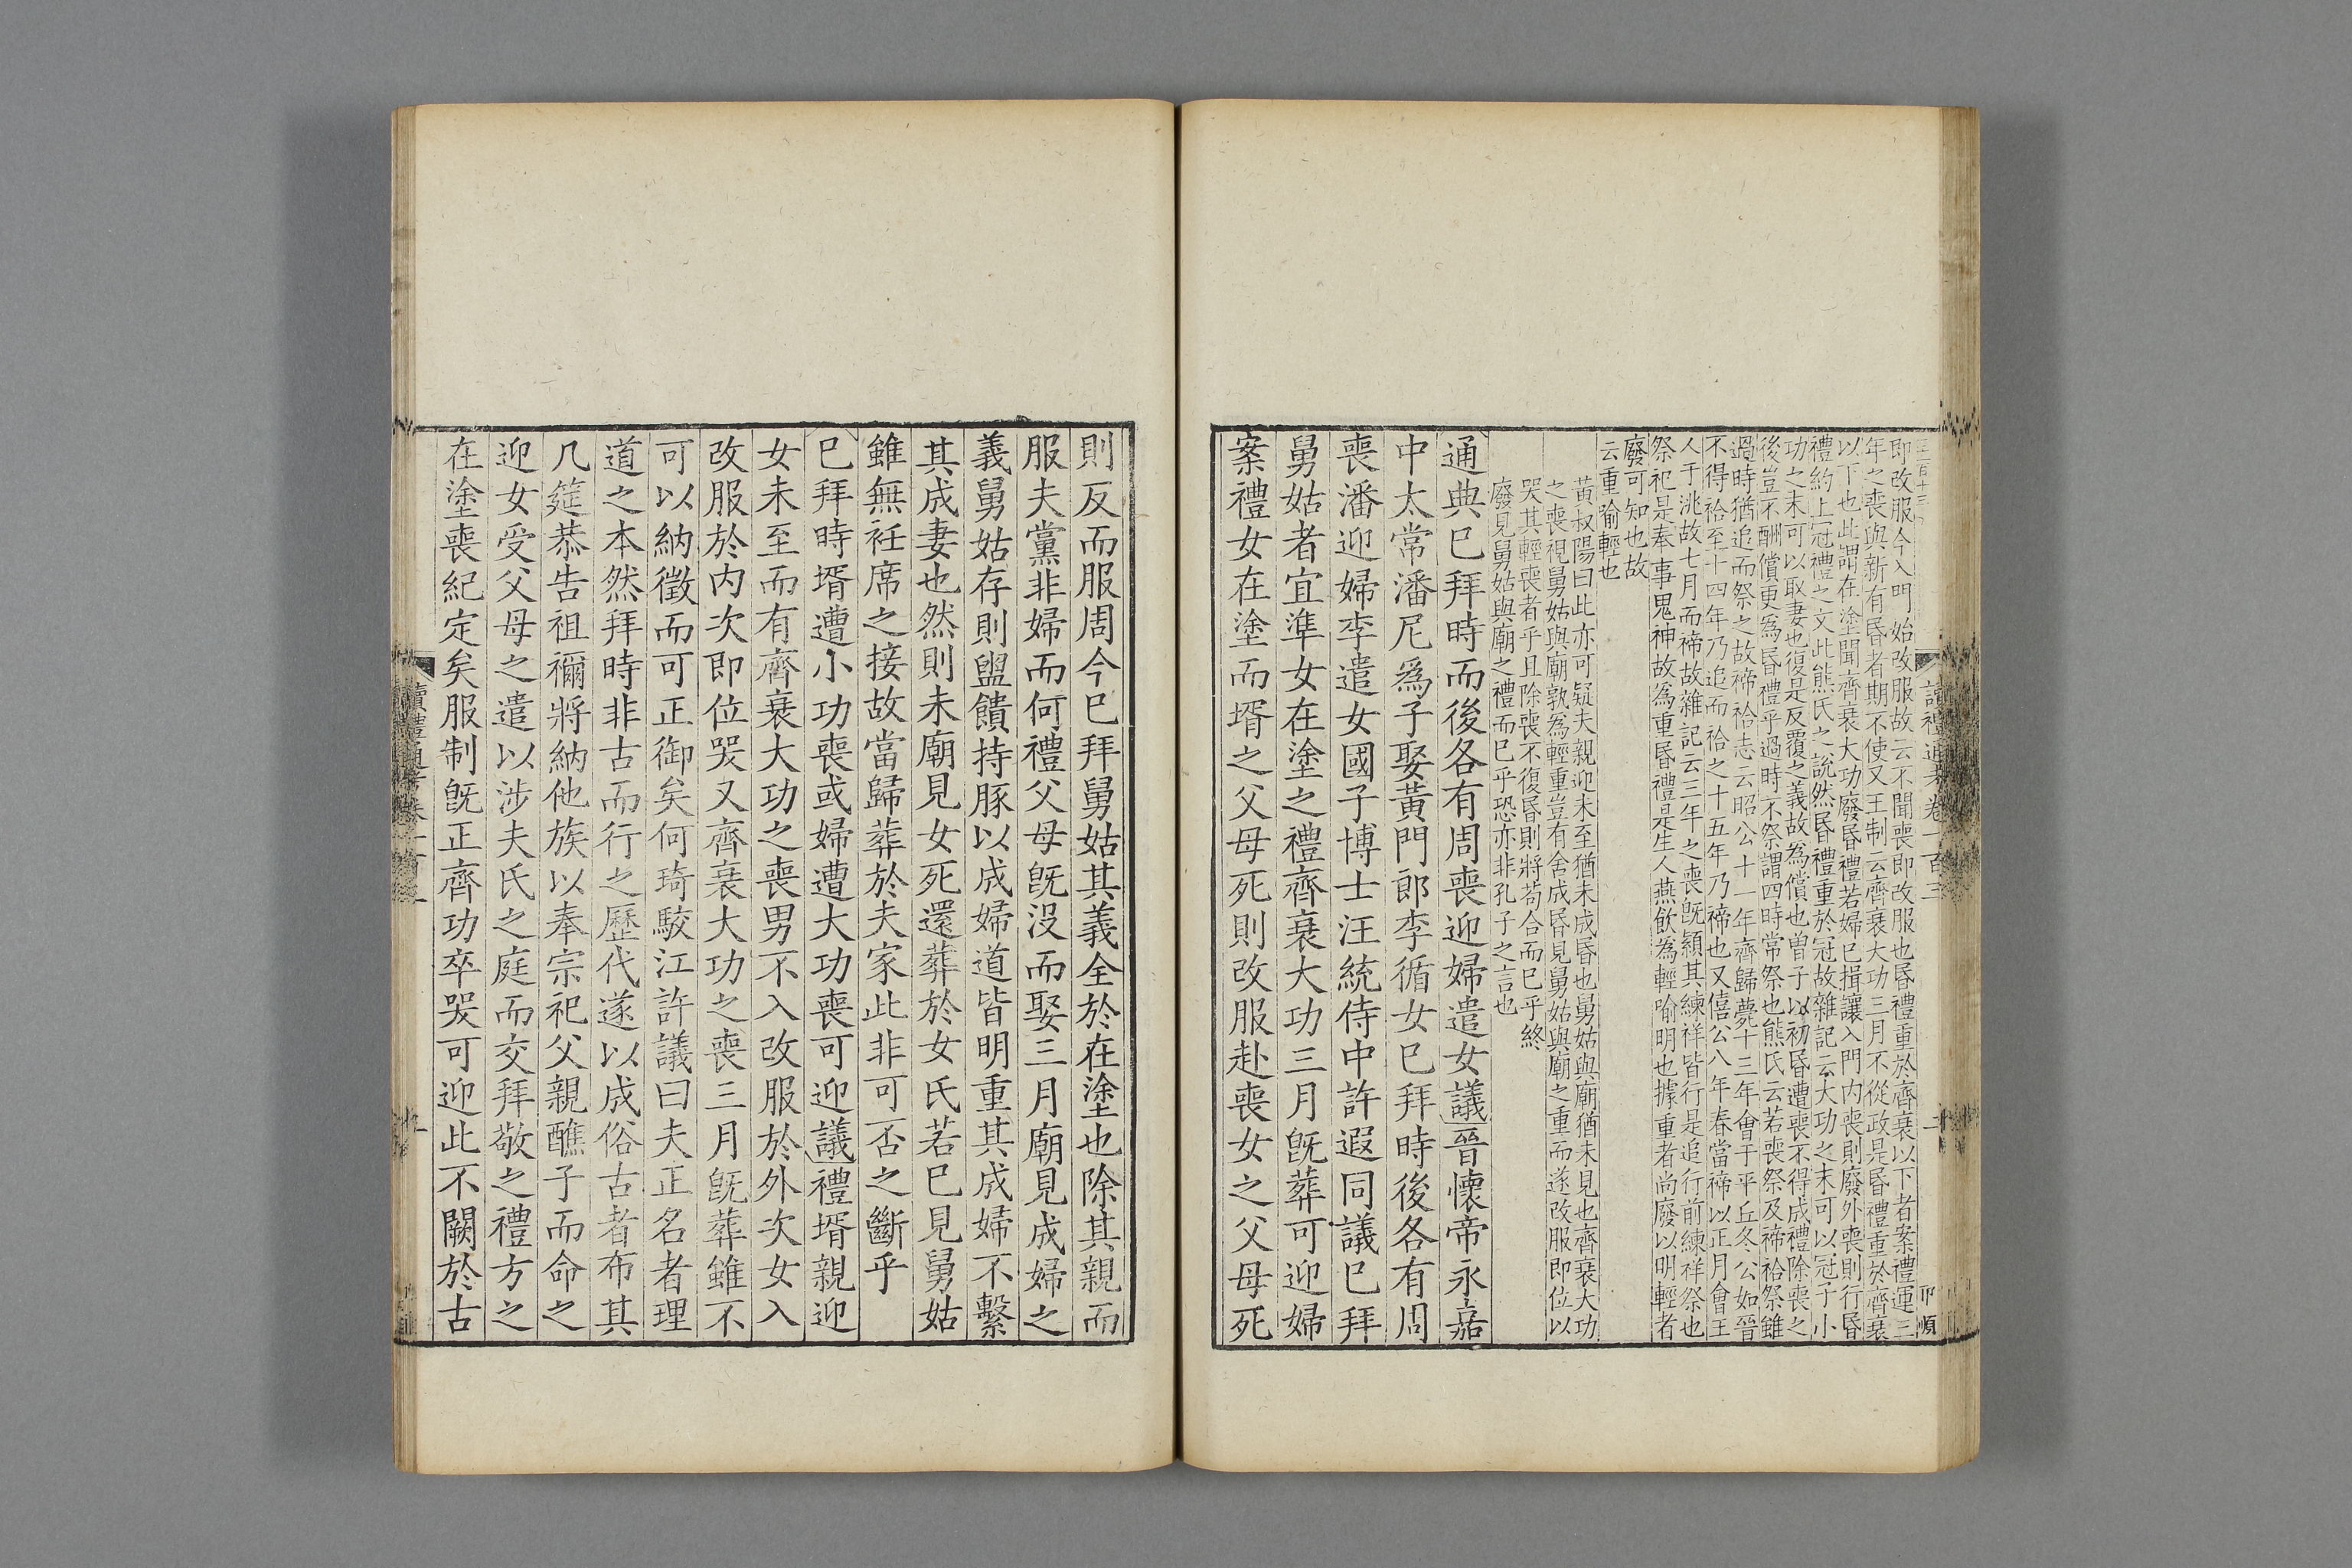 讀禮通考卷一百三
即改服今入門始改服故云不聞喪即改服也昏禮重於齊衰以下者案禮運三
年之喪與新有昏者期不使又王制云齊衰大功三月不從政是昏禮重於齊衰
以下也此謂在塗聞齊衰大功廢昏禮若婦已揖讓入門内喪則廢外喪則行昏
禮約上冠禮之文此熊氏之說然昏禮重於冠故雜記云大功之末可以冠子小
功之末可以取妻也復是反覆之義故為償也曾子以初昏遭喪不得成禮除喪之
後豈不酬償更為昏禮乎過時不祭謂四時常祭也熊氏云若喪祭及禘祫祭雖
過時猶追而祭之故禘祫志云昭公十一年齊歸薨十三年會于平丘冬公如晉
不得祫至十四年乃追而祫之十五年乃禘也又僖公八年春當禘以正月會王
人于洮故七月而禘故雜記云三年之喪旣穎其練祥皆行是追行前練祥祭也
祭祀是奉事鬼神故為重昏禮是生人燕飲為輕喻明也據重者尚廢以明輕者
廢可知也故
云重喻輕也
黃叔陽曰此亦可疑夫親迎未至猶未成昏也舅姑與廟猶未見也齊衰大功
之喪視舅姑與廟孰為輕重豈有舍成昏見舅姑與廟之重而遂改服即位以
哭其輕喪者乎且除喪不復昏則將苟合而已乎終
廢見舅姑與廟之禮而已乎恐亦非孔子之言也
通典已拜時而後各有周喪迎婦遣女議晉懷帝永嘉
中太常潘尼為子娶黃門郎李循女已拜時後各有周
喪潘迎婦李遣女國子博士汪統侍中許遐同議已拜
舅姑者宜準女在塗之禮齊衰大功三月旣葬可迎婦
案禮女在塗而壻之父母死則改服赴喪女之父母死
則反而服周今已拜舅姑其義全於在塗也除其親而
服夫黨非婦而何禮父母旣没而娶三月廟見成婦之
義舅姑存則盥饋持豚以成婦道皆明重其成婦不繫
其成妻也然則未廟見女死還葬於女氏若已見舅姑
雖無衽席之接故當歸葬於夫家此非可否之斷乎
已拜時壻遭小功喪或婦遭大功喪可迎議禮壻親迎
女未至而有齊衰大功之喪男不入改服於外次女入
改服於内次即位哭又齊衰大功之喪三月旣葬雖不
可以納徵而可正御矣何琦駮江許議曰夫正名者理
道之本然拜時非古而行之歷代遂以成俗古者布其
几筵恭告祖禰將納他族以奉宗祀父親醮子而命之
迎女受父母之遣以涉夫氏之庭而交拜敬之禮方之
在塗喪紀定矣服制旣正齊功卒哭可迎此不闕於古